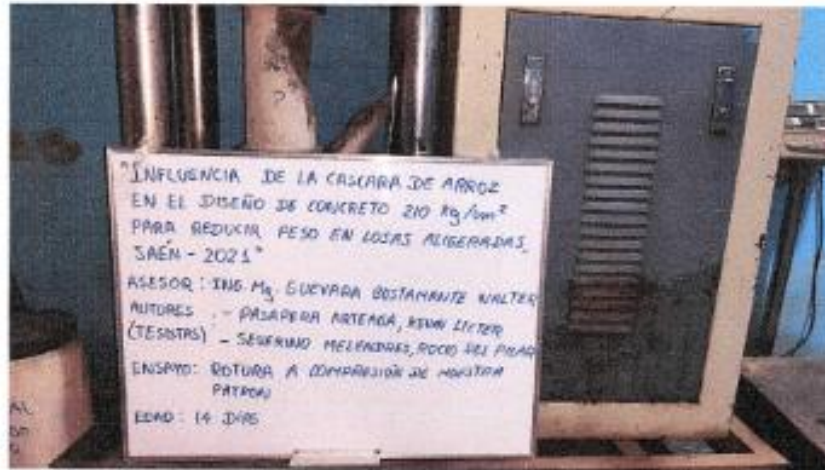 "INFLUENCIA DE LA CASCARA DE ARROZ
EN EL DISEÑO DE CONCRETO 210 Kg/cm²
PARA REDUCIR PESO EN LOSAS ALIGERADAS,
JAÉN - 2021"
ASESOR: ING. Mg. GUEVARA BUSTAMANTE WALTER
AUTORES : - PASAPERA ARTEAGA,
(TESISTAS) - SEVERINO MELENDRES, ROCIO DEL PILAR
ENSAYO: ROTURA A COMPRESIÓN DE MUESTRA
PATRON
EDAD: 14 DÍAS